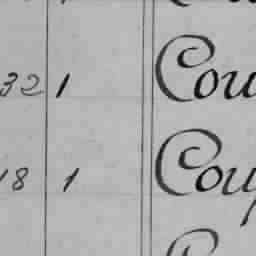 32 1 Cou
18 1 Coup